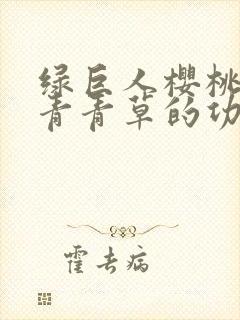 绿巨人樱桃
青青草的功
霍去病